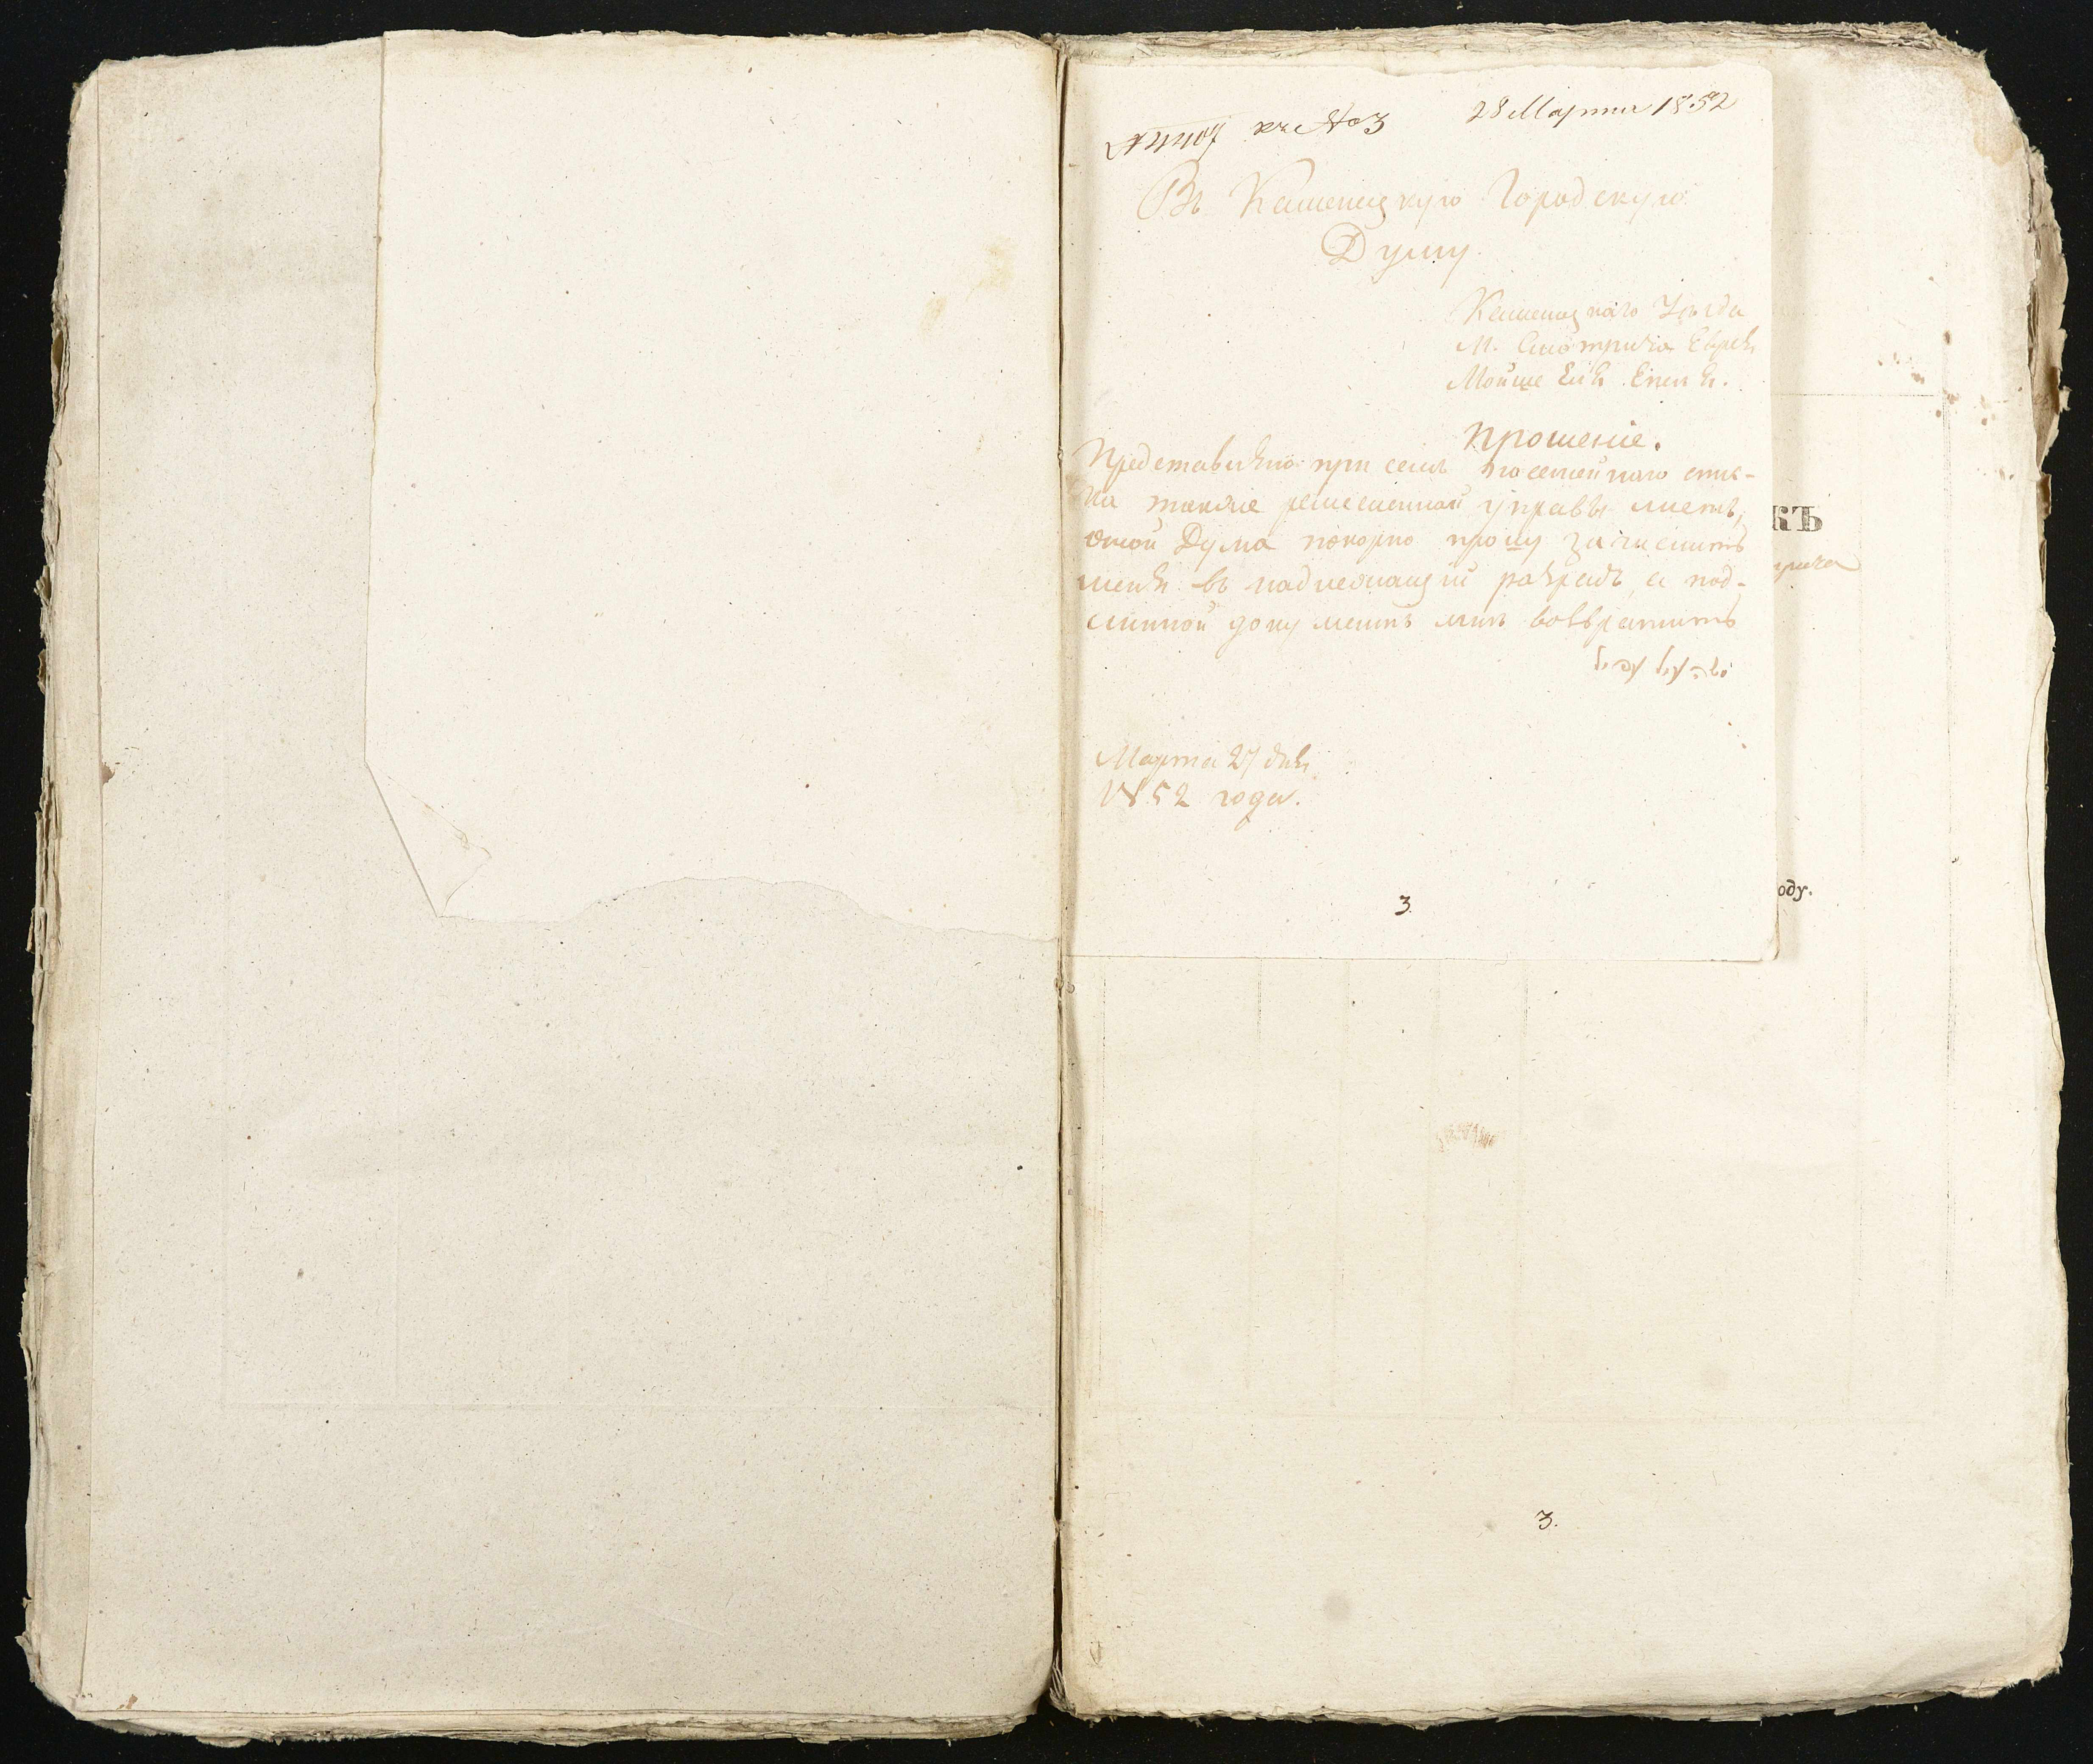 къ №3 28 Марта 1852
Въ Каменецкую Городскую
Думу
Каменецкаго Уѣзда
М. Смотрича Еврея
Мойше
Прошеніе.
Представляя при семъ посемейнаго спис-
ка также ремесленной управы листъ,
оной Дума покорно прошу зачислить
меня въ надлежащій разрядъ, а под-
линной документъ мнѣ возвратить
Марта 27 дня
1852 года.
3
къ
оду.
3.